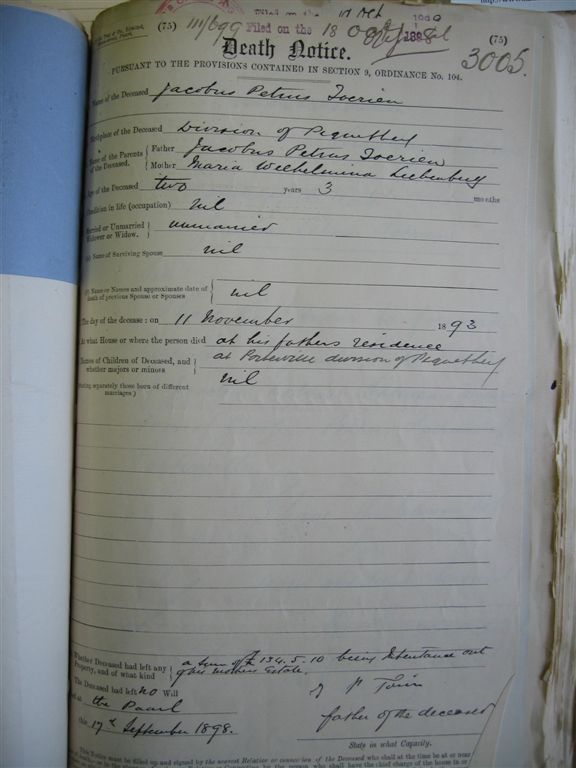 (75) 111/699 Filed on the 18 (75)
Death Notice. 3005.
PURSUANT TO THE PROVISIONS CONTAINED IN SECTION 9, ORDINANCE No. 104.
Name of the Deceased Jacobus Petrus Toerien
Birthplace of the Deceased Division of Piquetberg
Name of the Parents of the Deceased. Father Jacobus Petrus Toerien
Mother Maria Wilhelmina Liebenberg
Age of the Deceased two years 3 months
Condition in life (occupation) Nil
Married or Unmarried Widower or Widow. unmarried
Name of Surviving Spouse nil
Name or Names and approximate date of death of previous Spouse or Spouses nil
The day of the decease: on 11 November 1893
At what House or where the person died at his fathers residence
at Porterville division of Piquetberg
Names of Children of Deceased, and whether majors or minors nil
(stating separately those born of different marriages)
Whether Deceased had left any Property, and of what kind a sum of £134.5.10 being Inheritance out
of his mothers Estate.
The Deceased had left no Will
at the Paarl
father of the deceased
this 17th September 1898.
State in what Capacity.
This Notice must be filled up and signed by the nearest Relative or connexion of the Deceased who shall at the time be at or near